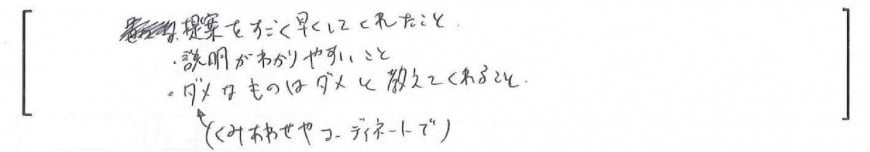 提案をすごく早くしてくれたこと.
・説明がわかりやすいこと
・ダメなものはダメと教えてくれること.
(くみあわせやコーディネートで)